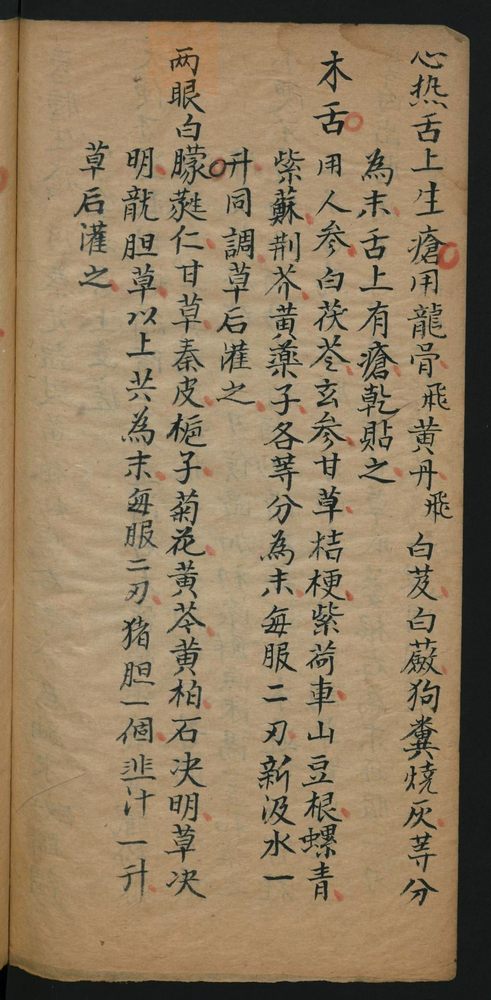 心热舌上生瘡用龍骨飛黄丹飛白芨白蘞狗糞燒灰䓁分
為末舌上有瘡乾貼之
木舌用人参白茯苓玄参甘草桔梗紫荷車山豆根螺青
紫蘇荆芥黄藥子各䓁分為末每服二刃新汲水一
升同調草后灌之
两眼白朦蕤仁甘草秦皮梔子菊花黄芩黄柏石决明草决
明龍胆草以上共為末每服二刃猪胆一個韭汁一升
草后灌之